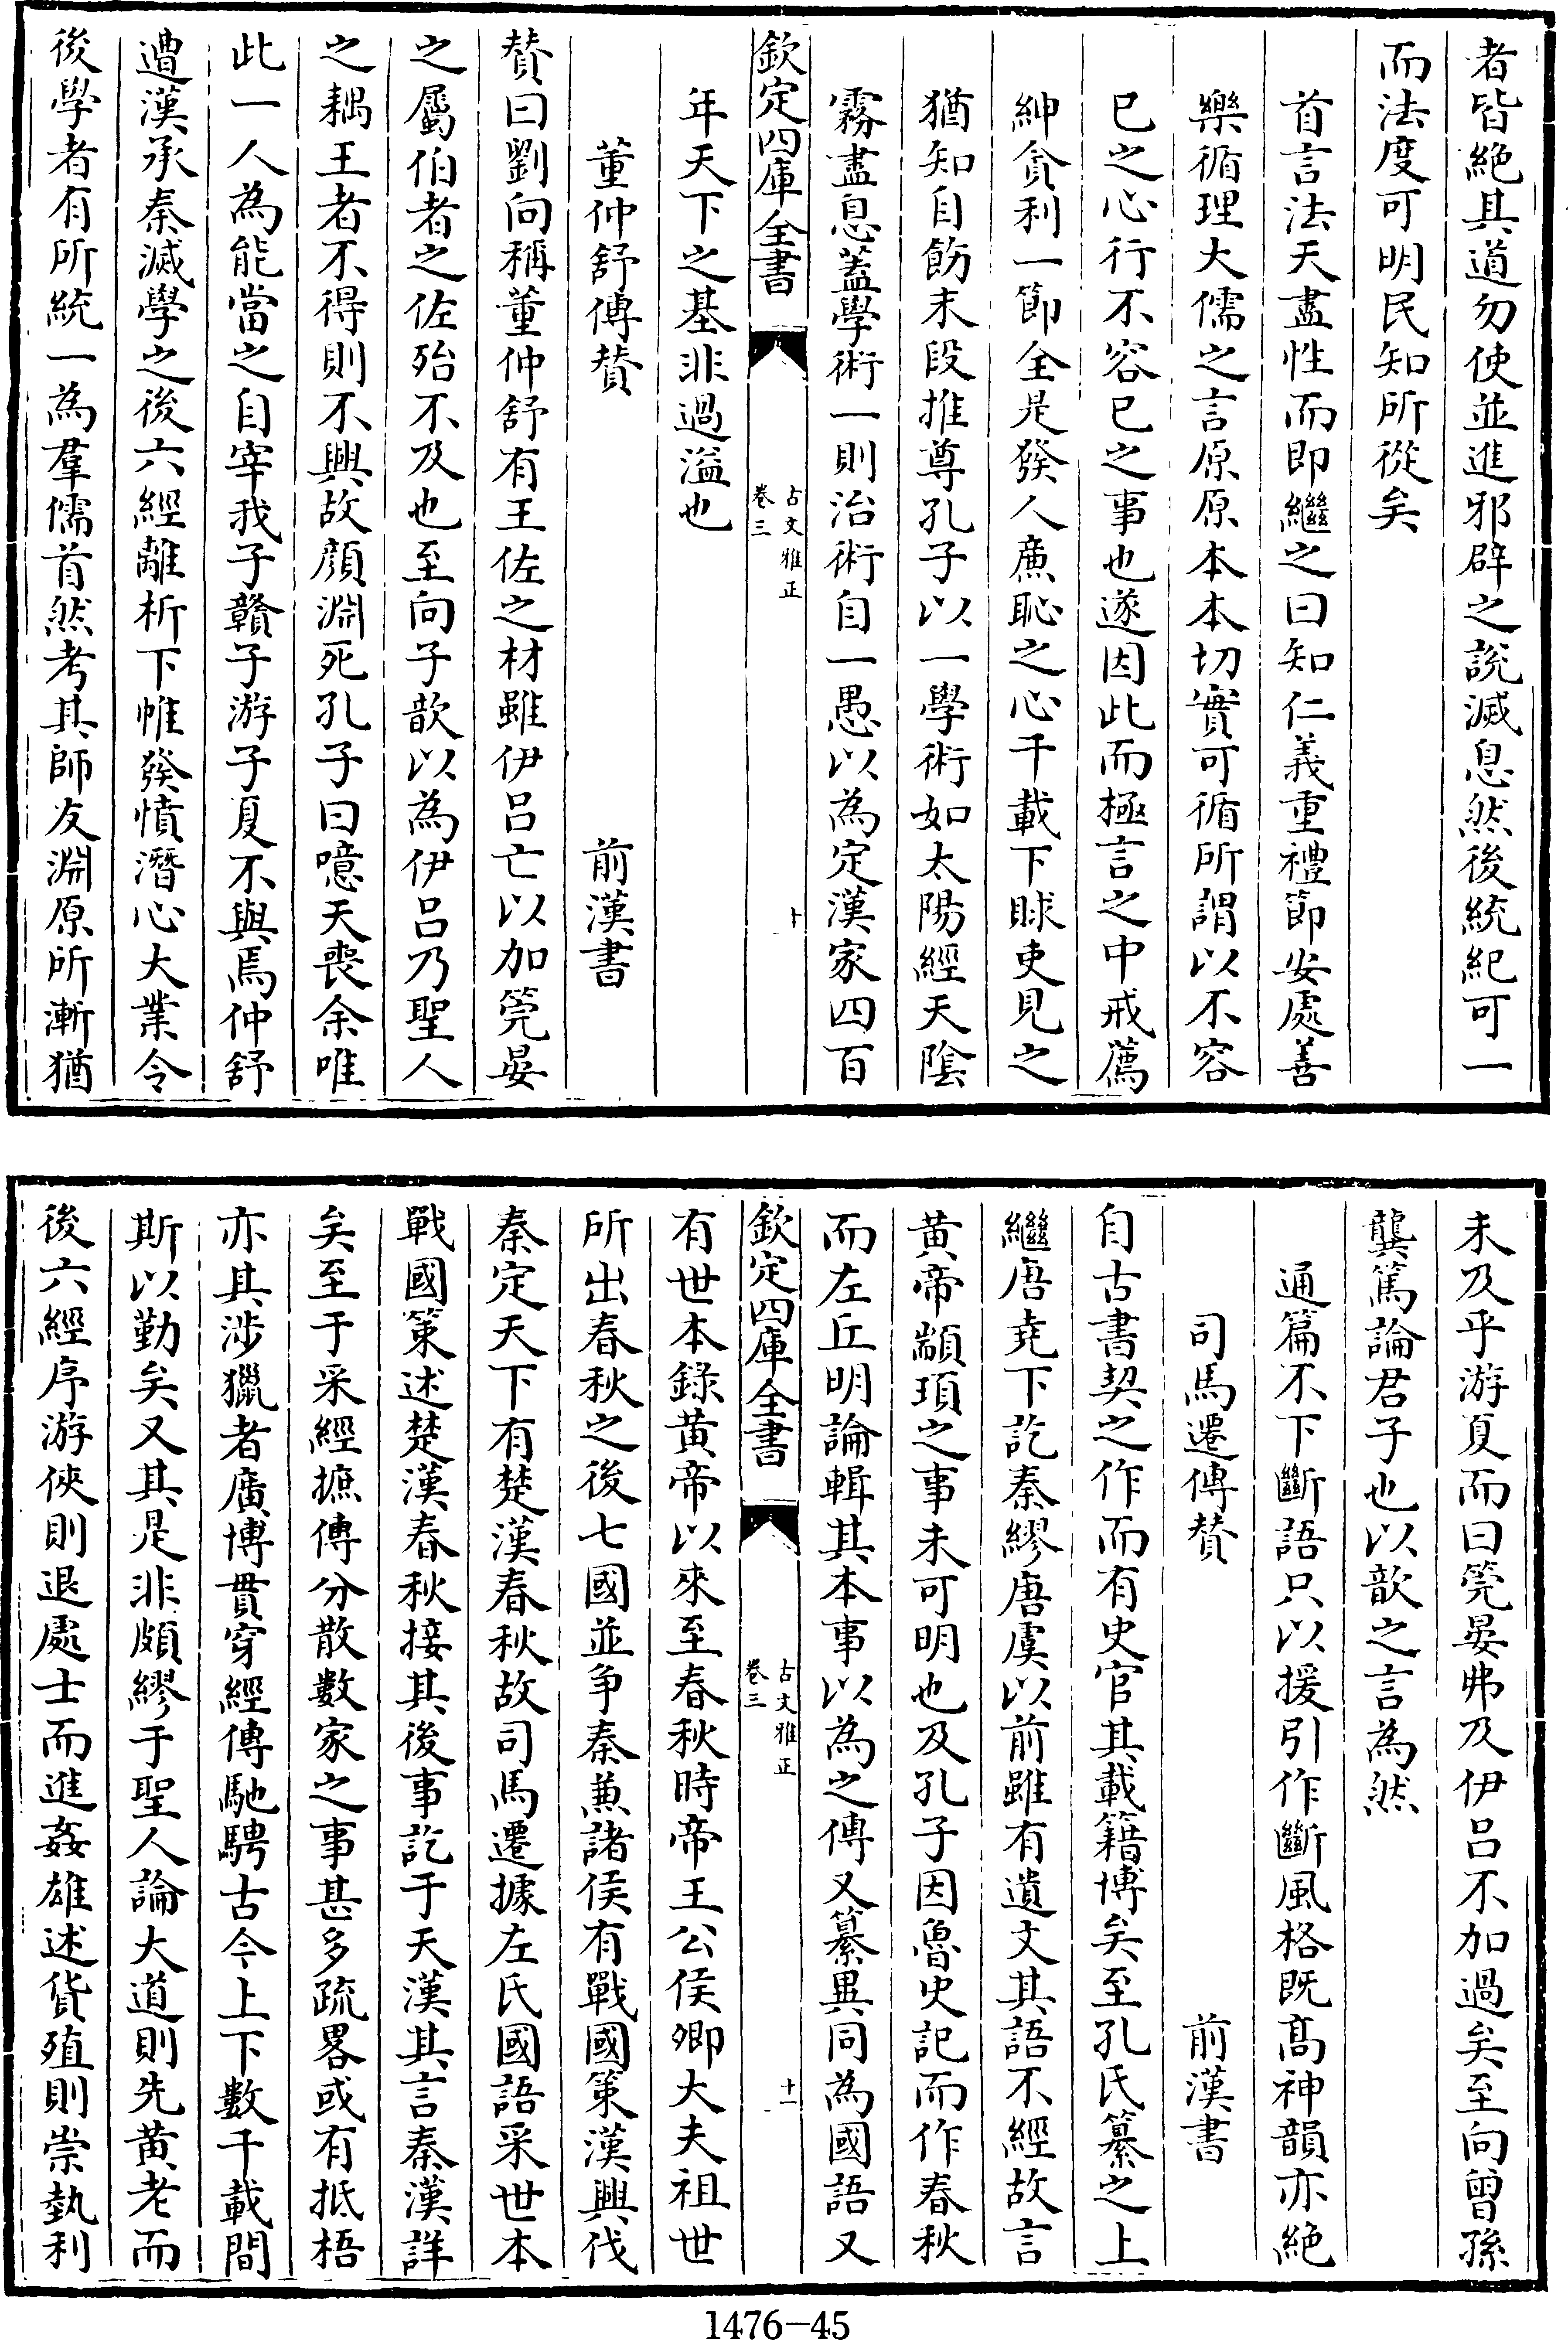 者皆絶其道勿使並進邪辟之説滅息然後統紀可一
而法度可明民知所從矣
首言法天盡性而即繼之曰知仁義重禮節安處善
樂循理大儒之言原原本本切實可循所謂以不容
已之心行不容已之事也遂因此而極言之中戒薦
紳貪利一節全是發人廉恥之心千載下賕吏見之
猶知自飭末段推尊孔子以一學術如太陽經天陰
霧盡息蓋學術一則治術自一愚以為定漢家四百
欽定四庫全書
古文雅正
卷三
十
年天下之基非過溢也
董仲舒傳贊
前漢書
賛曰劉向稱董仲舒有王佐之材雖伊吕亡以加筦晏
之屬伯者之佐殆不及也至向子歆以為伊吕乃聖人
之耦王者不得則不興故顔淵死孔子曰噫天喪余唯
此一人為能當之自宰我子贛子游子夏不與焉仲舒
遭漢承秦滅學之後六經離析下帷發憤潛心大業令
後學者有所統一為羣儒首然考其師友淵原所漸猶
未及乎游夏而曰筦晏弗及伊吕不加過矣至向曾孫
龔篤論君子也以歆之言為然
通篇不下斷語只以援引作斷風格既髙神韻亦絶
司馬遷傳贊
前漢書
自古書契之作而有史官其載籍博矣至孔氏纂之上
繼唐堯下訖秦繆唐虞以前雖有遺文其語不經故言
黄帝顓頊之事未可明也及孔子因魯史記而作春秋
而左丘明論輯其本事以為之傳又纂異同為國語又
欽定四庫全書
古文雅正
卷三
十一
有世本錄黄帝以來至春秋時帝王公侯卿大夫祖世
所出春秋之後七國並争秦兼諸侯有戰國策漢興伐
秦定天下有楚漢春秋故司馬遷據左氏國語采世本
戰國策述楚漢春秋接其後事訖于天漢其言秦漢詳
矣至于采經摭傳分散數家之事甚多疏畧或有抵梧
亦其涉獵者廣博貫穿經傳馳騁古今上下數千載間
斯以勤矣又其是非頗繆于聖人論大道則先黄老而
後六經序游俠則退處士而進姦雄述貨殖則崇埶利
1476-45